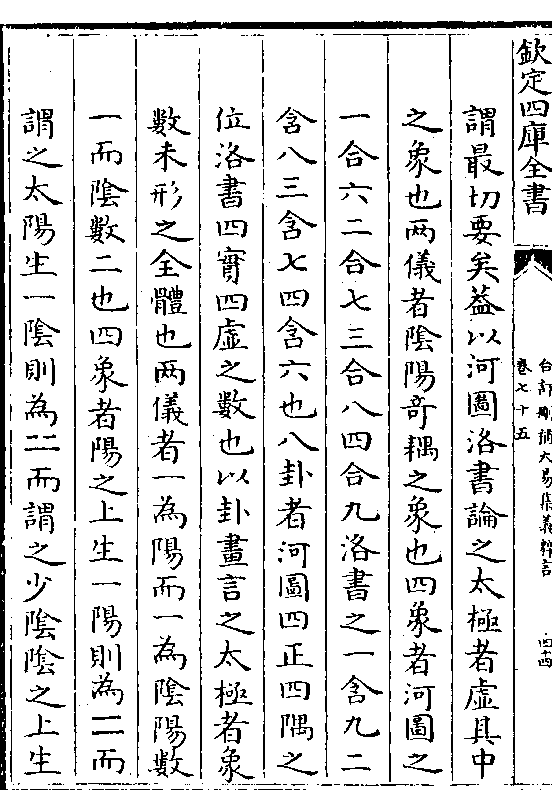 欽定四庫全書
合訂刪補大易集義粹言
卷七十五
四十四
謂最切要矣葢以河圖洛書論之太極者虛其中
之象也兩儀者陰陽奇耦之象也四象者河圖之
一合六二合七三合八四合九洛書之一含九二
含八三含七四含六也八卦者河圖四正四隅之
位洛書四實四虛之數也以卦畫言之太極者象
數未形之全體也兩儀者一為陽而一為陰陽數
一而陰數二也四象者陽之上生一陽則為二而
謂之太陽生一陰則為二而謂之少陰陰之上生